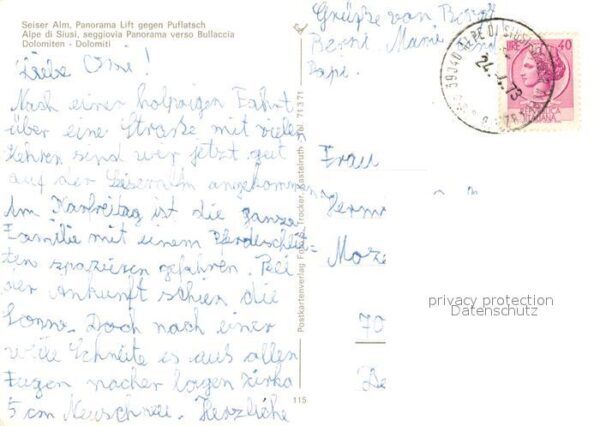 Seiser Alm, Panorama Lift gegen Puflatsch
Alpe di Siusi, seggiovia Panorama verso Bullaccia
Dolomiten - Dolomiti
Liebe Omi!
Nach einer holprigen Fahrt
über eine Straße mit vielen
Kehren sind wir jetzt gut
auf der Seiseralm angekommen
Am Karfreitag ist die ganze
Familie mit einem Pferdeschlit=
ten spazieren gefahren. Bei
der Ankunft schien die
Sonne. Doch nach einer
Weile schneite es aus allen
Fugen nacher lagen zirka
5 cm Neuschnee. Herzliche
Grüße von
Bernd, Mami und
Papi.
Postkartenverlag Trocker, Kastelruth 71371
115
39040 ALPE DI SIUSI
24.4.73
LIRE 40
Frau
Herm
Moze
70
De
privacy protection
Datenschutz